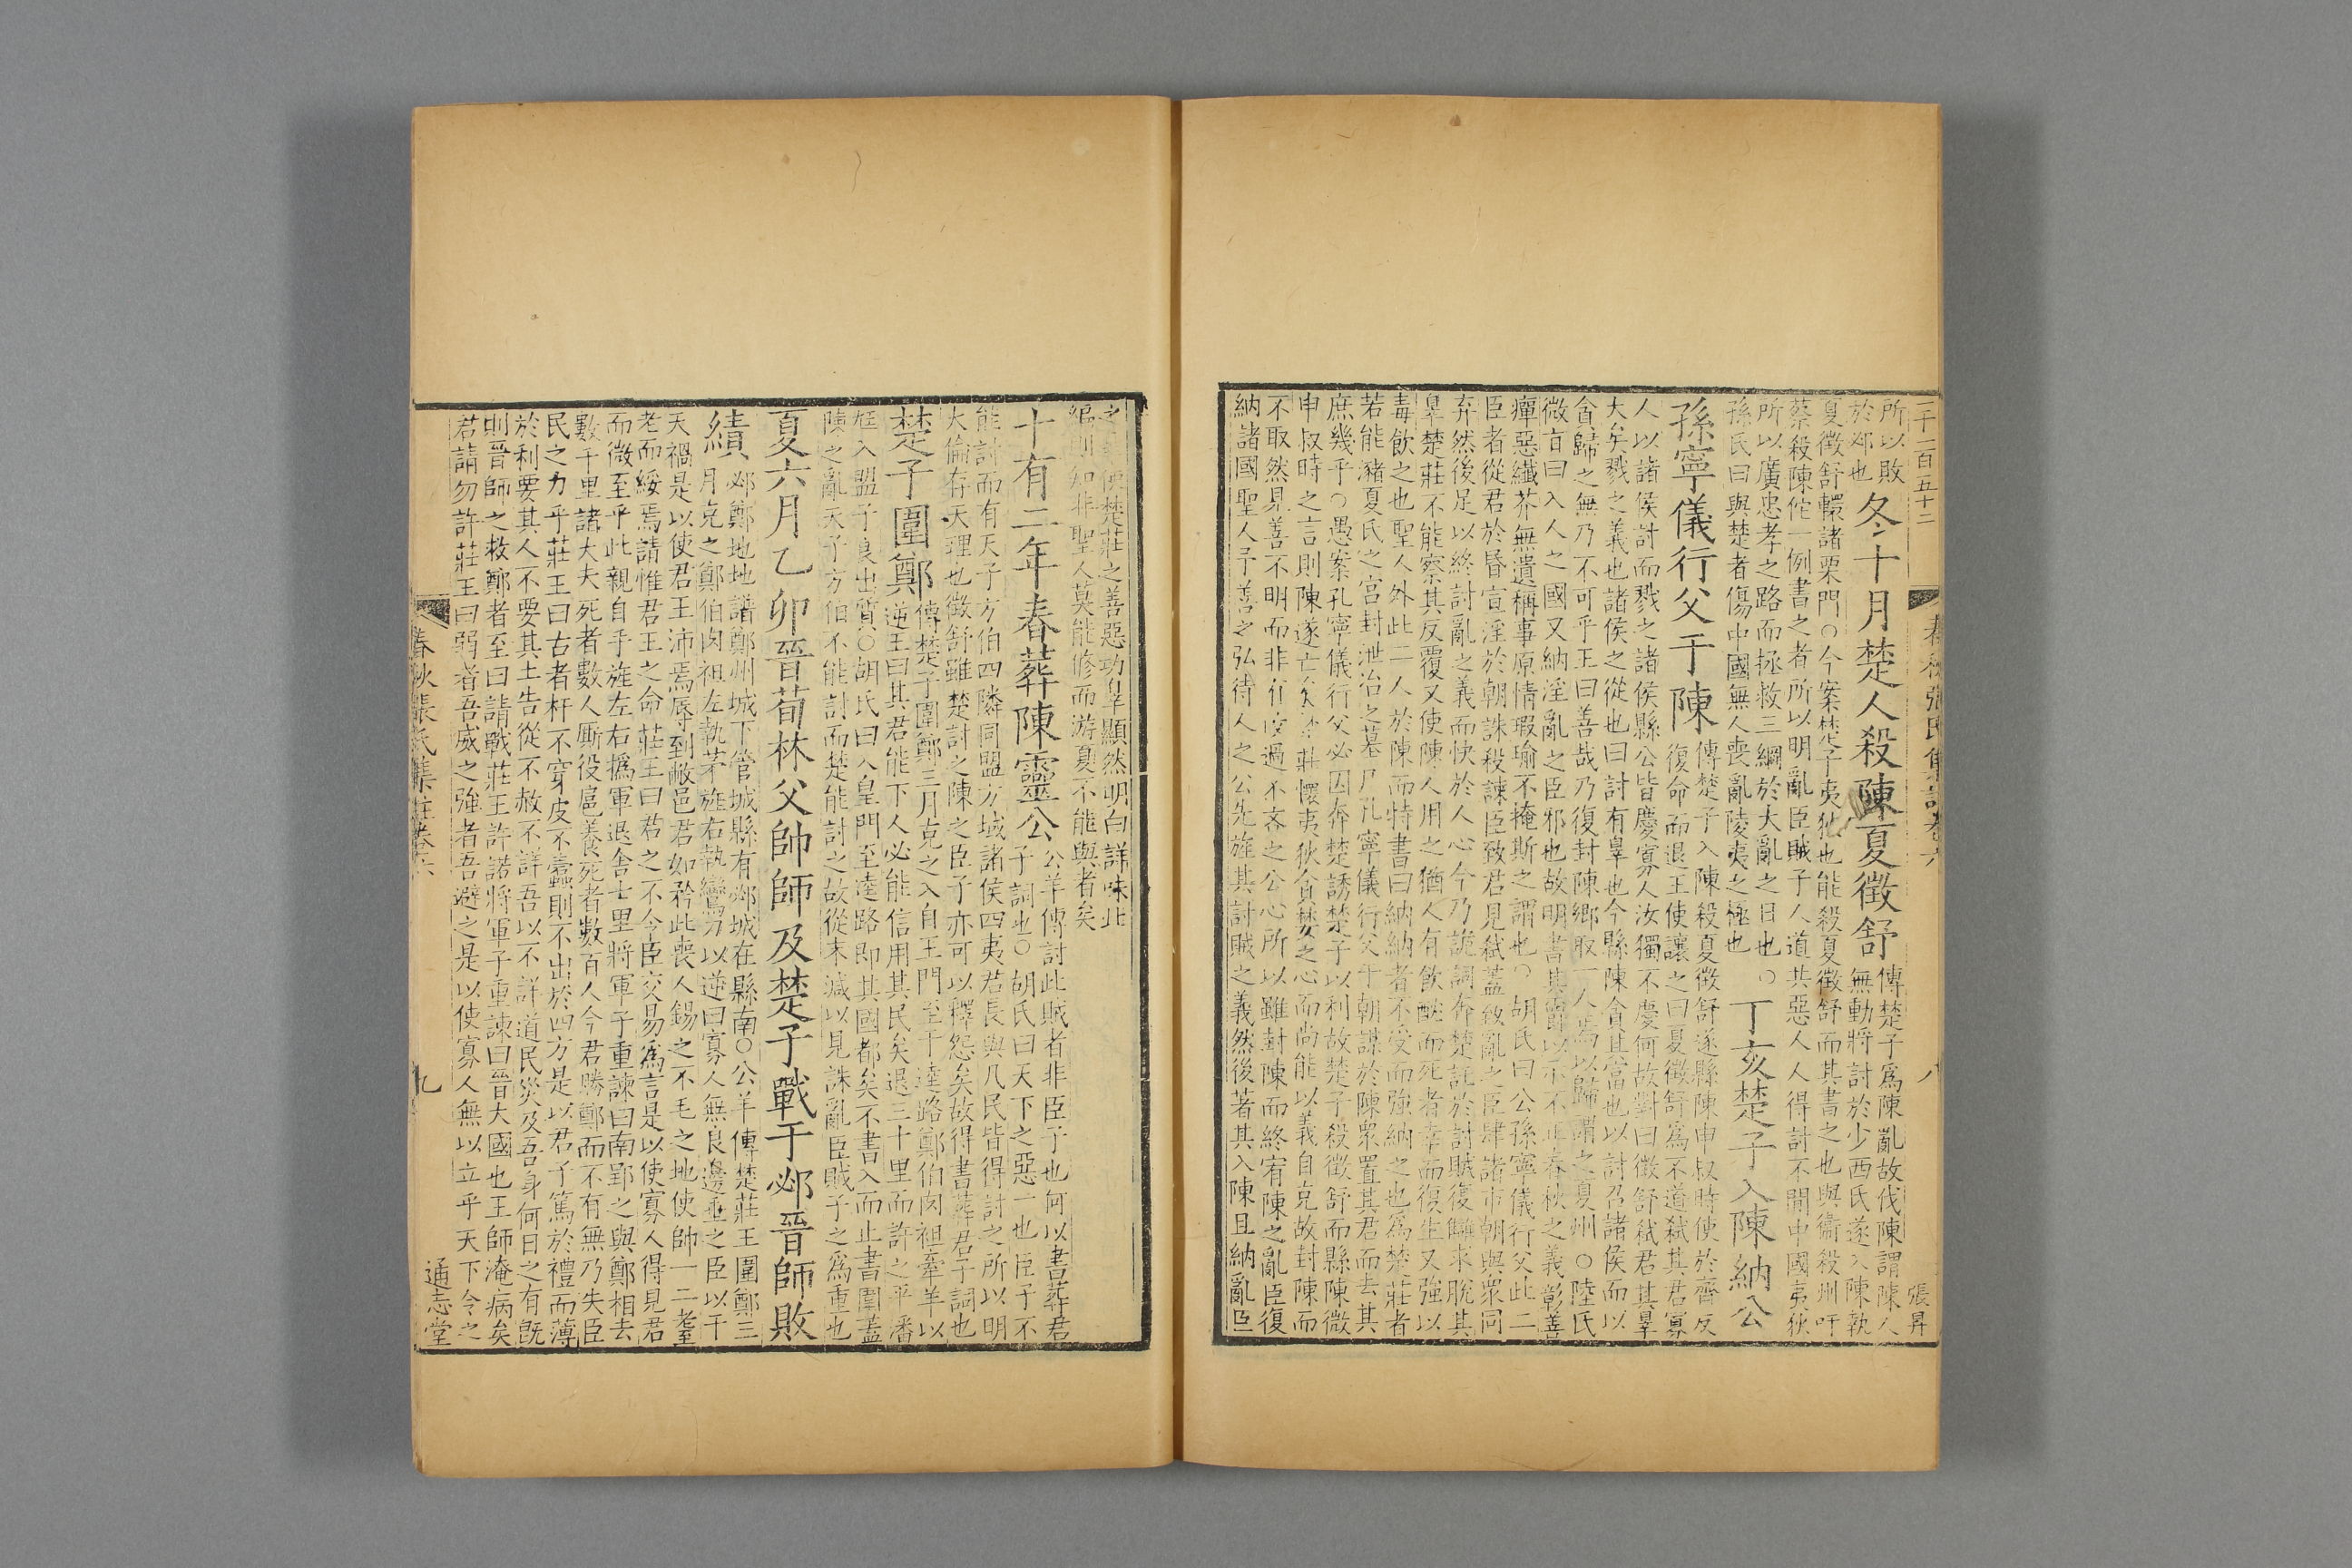 二千二百五十二
春秋張氏集註卷六
八
張昇
所以敗
於邲也
冬十月楚人殺陳夏徵舒
傳楚子爲陳亂故伐陳謂陳人
無動將討於少西氏遂入陳執
夏徵舒轘諸栗門○今案楚子夷狄也能殺夏徵舒而其書之也與衞殺州吁
蔡殺陳佗一例書之者所以明亂臣賊子人道共惡人人得討不間中國夷狄
所以廣忠孝之路而拯救三綱於大亂之日也○
孫氏曰與楚者傷中國無人喪亂陵夷之極也
丁亥楚子入陳納公
孫寧儀行父于陳
傳楚子入陳殺夏徵舒遂縣陳申叔時使於齊反
復命而退王使讓之曰夏徵舒爲不道弑其君寡
人以諸侯討而戮之諸侯縣公皆慶寡人汝獨不慶何故對曰徵舒弑君其辠
大矣戮之義也諸侯之從也曰討有辠也今縣陳貪其富也以討召諸侯而以
貪歸之無乃不可乎王曰善哉乃復封陳鄉取一人焉以歸謂之夏州○陸氏
微旨曰入人之國又納淫亂之臣邪也故明書其爵以示不正春秋之義彰善
癉惡纖芥無遺稱事原情瑕瑜不掩斯之謂也○胡氏曰公孫寧儀行父此二
臣者從君於昏宣淫於朝誅殺諫臣致君見弑蓋致亂之臣肆諸市朝與衆同
弃然後足以終討亂之義而快於人心今乃詭詞奔楚託於討賊復讎求脫其
辠楚莊不能察其反覆又使陳人用之猶人有飲酖而死者幸而復生又強以
毒飲之也聖人外此二人於陳而特書曰納納者不受而強納之也爲楚莊者
若能瀦夏氏之宫封泄冶之墓尸孔寧儀行父于朝謀於陳衆置其君而去其
庶幾乎○愚案孔寧儀行父必因奔楚誘楚子以利故楚子殺徵舒而縣陳微
申叔時之言則陳遂亡矣楚莊懷夷狄貪婪之心而尚能以義自克故封陳而
不取然見善不明而非有改過不吝之公心所以雖封陳而終宥陳之亂臣復
納諸國聖人予善之弘待人之公先旌其討賊之義然後著其入陳且納亂臣
之辠使楚莊之善惡功辠顯然明白詳味此
編則知非聖人莫能修而游夏不能與者矣
十有二年春葬陳靈公
公羊傳討此賊者非臣子也何以書葬君
子詞也○胡氏曰天下之惡一也臣子不
能討而有天子方伯四隣同盟方域諸侯四夷君長與凡民皆得討之所以明
大倫存天理也徵舒雖楚討之陳之臣子亦可以釋怨矣故得書葬君子詞也
楚子圍鄭
傳楚子圍鄭三月克之入自王門至于逵路鄭伯肉袒牽羊以
逆王曰其君能下人必能信用其民矣退三十里而許之平潘
尫入盟子良出質○胡氏曰入皇門至逵路即其國都矣不書入而止書圍蓋
陳之亂天子方伯不能討而楚能討之故從末減以見誅亂臣賊子之爲重也
夏六月乙卯晉荀林父帥師及楚子戰于邲晉師敗
績
邲鄭地地譜鄭州城下管城縣有邲城在縣南○公羊傳楚莊王圍鄭三
月克之鄭伯肉袒左執茅旌右執鸞刀以逆曰寡人無良邊垂之臣以干
天禍是以使君王沛焉辱到敝邑君如矜此喪人錫之不毛之地使帥一二耋
老而綏焉請惟君王之命莊王曰君之不令臣交易爲言是以使寡人得見君
而微至乎此親自手旌左右撝軍退舍七里將軍子重諫曰南郢之與鄭相去
數千里諸大夫死者數人厮役扈養死者數百人今君勝鄭而不有無乃失臣
民之力乎莊王曰古者杅不穿皮不蠹則不出於四方是以君子篤於禮而薄
於利要其人不要其土告從不赦不詳吾以不詳道民災及吾身何日之有既
則晉師之救鄭者至曰請戰莊王許諾將軍子重諫曰晉大國也王師淹病矣
君請勿許莊王曰弱者吾威之強者吾避之是以使寡人無以立乎天下令之
春秋張氏集註卷六
九
通志堂